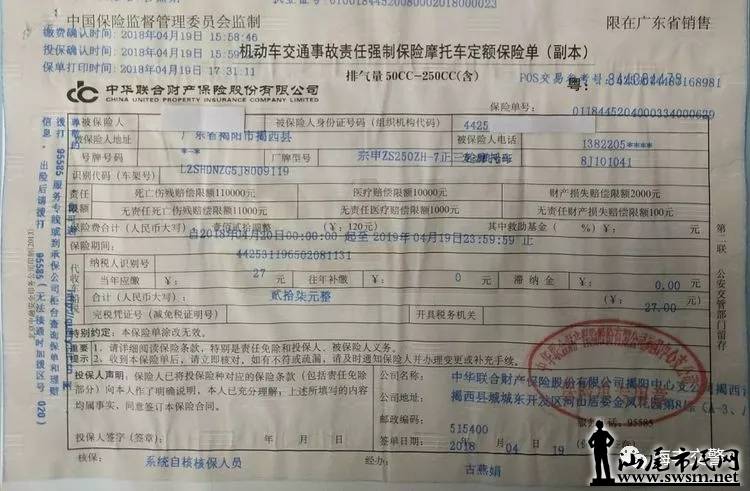 中国保险监督管理委员会监制
限在广东省销售
缴费确认时间:2018年04月19日 15:58:46
投保确认时间:2018年04月19日 15:58:49
保单打印时间:2018年04月19日 17:31:11
机动车交通事故责任强制保险摩托车定额保险单（副本）
排气量50CC-250CC(含)
POS交易参考号:
粤:
中华联合财产保险股份有限公司
CHINA UNITED PROPERTY INSURANCE COMPANY LIMITED
保险单号:
0118445204000334000629
被保险人
被保险人身份证号码(组织机构代码)
4425
被保险人地址
广东省揭阳市揭西县
被保险人电话
1382205****
号牌号码
*-*
厂牌型号
宗申ZS250ZH-7正三轮摩托车
8J101041
识别代码(车架号)
LZSHDNZG5J8009119
责任
限额
死亡伤残赔偿限额110000元
医疗赔偿限额10000元
财产损失赔偿限额2000元
无责任死亡伤残赔偿限额11000元
无责任医疗赔偿限额1000元
无责任财产损失赔偿限额100元
保险费合计(人民币大写):
壹佰贰拾圆整
(¥: 120元)
其中救助基金(%)¥:
元
保险期间:
自2018年04月20日00:00:00 起至 2019年04月19日23:59:59 止
代收车船税
纳税人识别号
442531196502081131
当年应缴
¥:
27
元
往年补缴
¥:
0
元
滞纳金
¥:
0.00
元
合计(人民币大写):
贰拾柒元整
(¥:
27.00
完税凭证号(减免税证明号)
开具税务机关
特别约定:本保险单涂改无效。
重要提示
1. 请详细阅读保险条款，特别是责任免除和投保人、被保险人义务。
2. 收到本保险单后，请立即核对，如有不符或疏漏，请及时通知保险人并办理变更或补充手续。
投保人声明:保险人已将投保险种对应的保险条款(包括责任免除部分)向本人作了明确说明，本人已充分理解；上述所填写的内容均属事实，同意签订本保险合同。
投保人签字(签章):
年 月 日
公司名称:
中华联合财产保险股份有限公司揭阳中心支公司揭西
公司地址:
揭西县城城东开发区河山居委金凤花园第81
邮政编码:
515400
服务电话:
95585
签单日期:
2018 年 04 月 19 日
核保:
系统自核核保人员
经办:
古燕娟
第二联
公安交管部门留存
拨打95585服务专线或到承保公司柜台查询保单和理赔
信息。出险后请拨打95585(无法接通时加拨区号020)
汕尾市民网
www.swsm.net